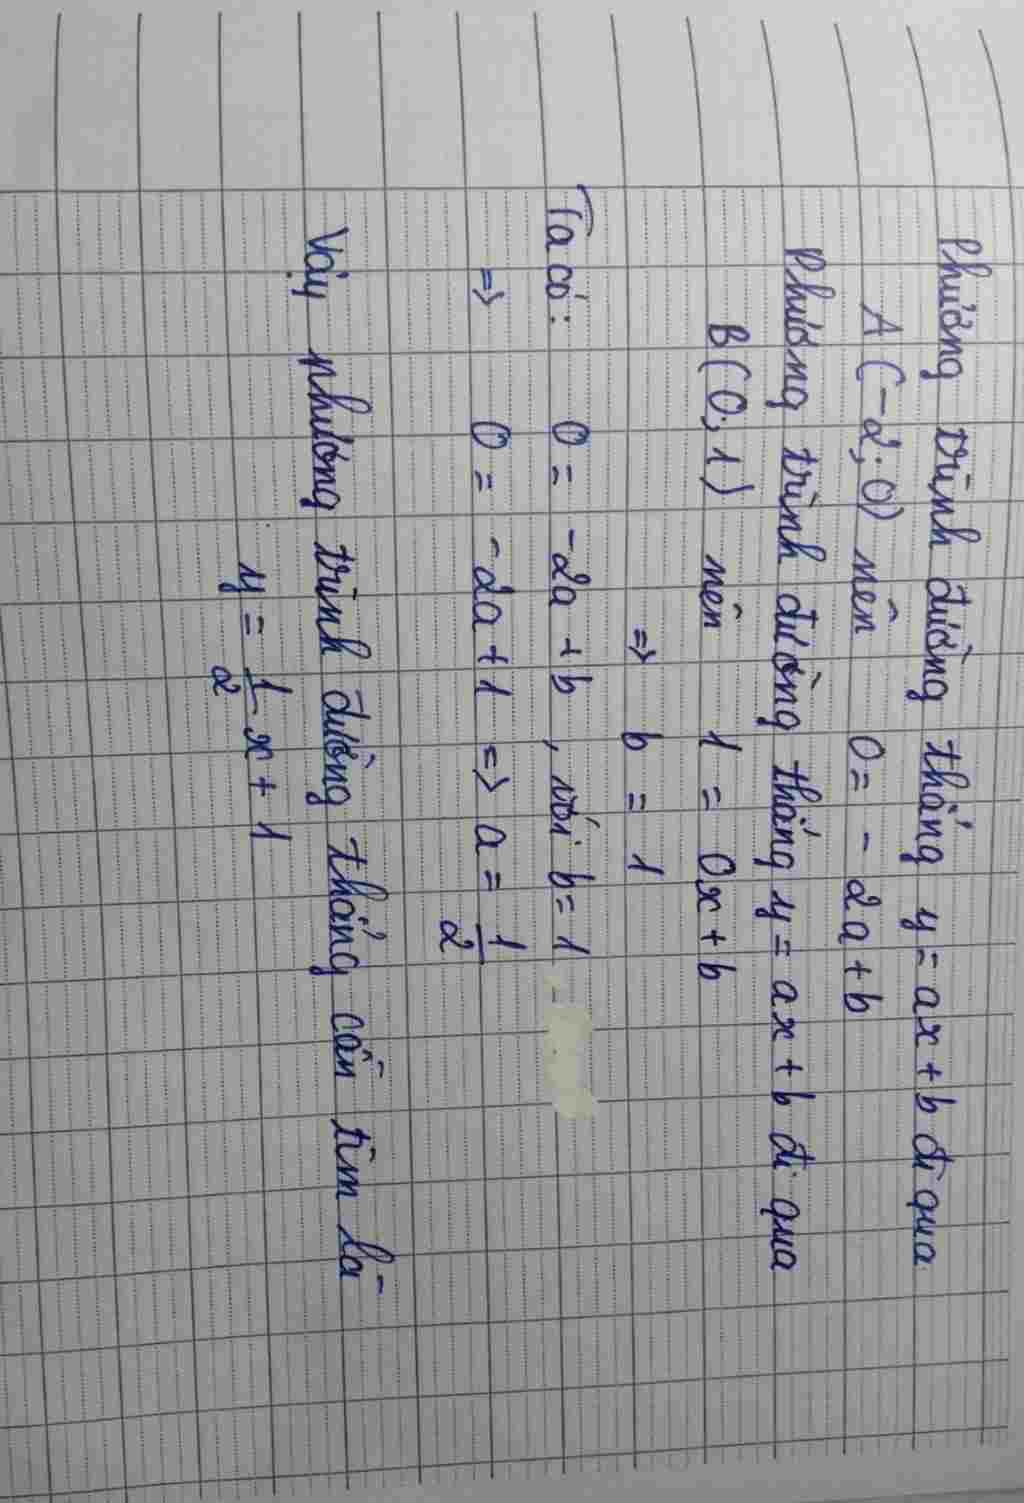 Phương trình đường thẳng y = ax + b đi qua
A (-2; 0) nên 0 = - 2a + b
Phương trình đường thẳng y = ax + b đi qua
B (0; 1) nên 1 = 0x + b
=> b = 1
Ta có: 0 = -2a + b, với b = 1
=> 0 = -2a + 1 => a = 1/2
Vậy phương trình đường thẳng cần tìm là
y = 1/2 x + 1